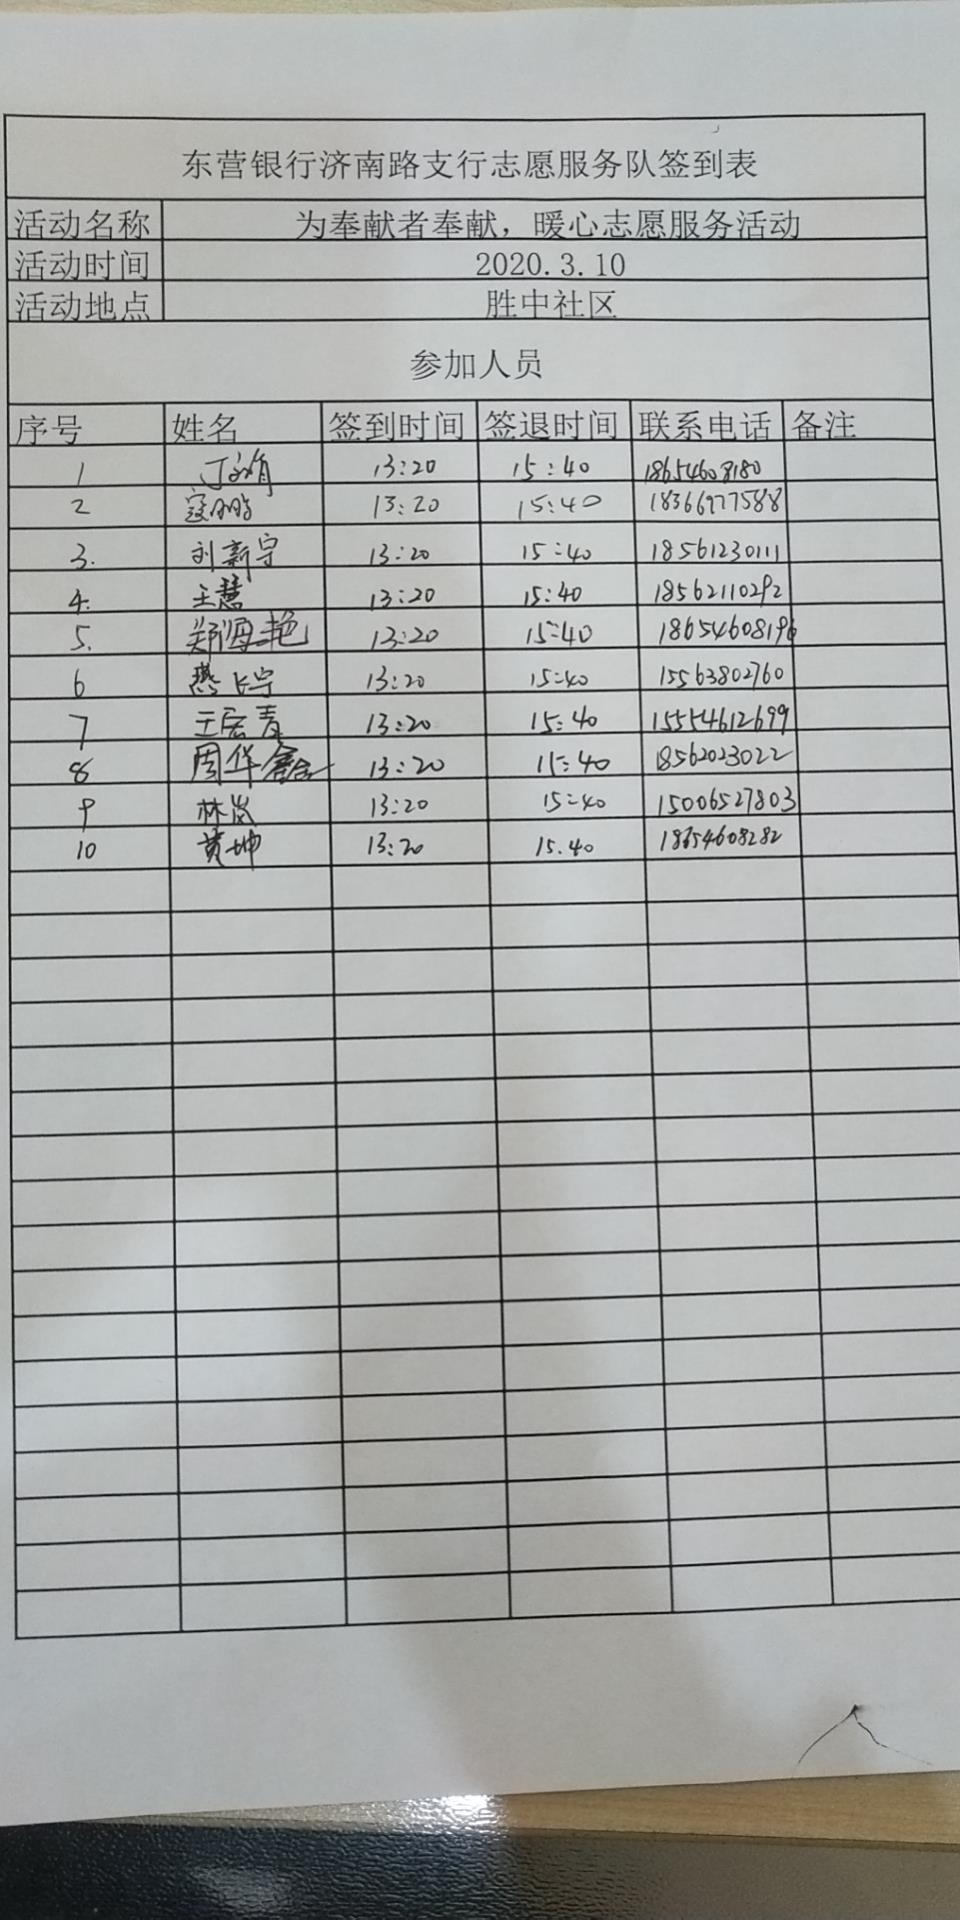 东营银行济南路支行志愿服务队签到表
活动名称 为奉献者奉献，暖心志愿服务活动
活动时间 2020.3.10
活动地点 胜中社区
参加人员
序号 姓名 签到时间 签退时间 联系电话 备注
1 丁 13:20 15:40 18654608180
2 寇 13:20 15:40 18366977588
3. 刘新宇 13:20 15:40 18561230111
4. 王慧 13:20 15:40 18562110292
5. 郑海艳 13:20 15:40 18654608196
6 燕长宁 13:20 15:40 15563802760
7 王宏青 13:20 15:40 15554612699
8 周华鑫 13:20 15:40 18562023022
9 林岚 13:20 15:40 15006527803
10 黄坤 13:20 15.40 18654608282